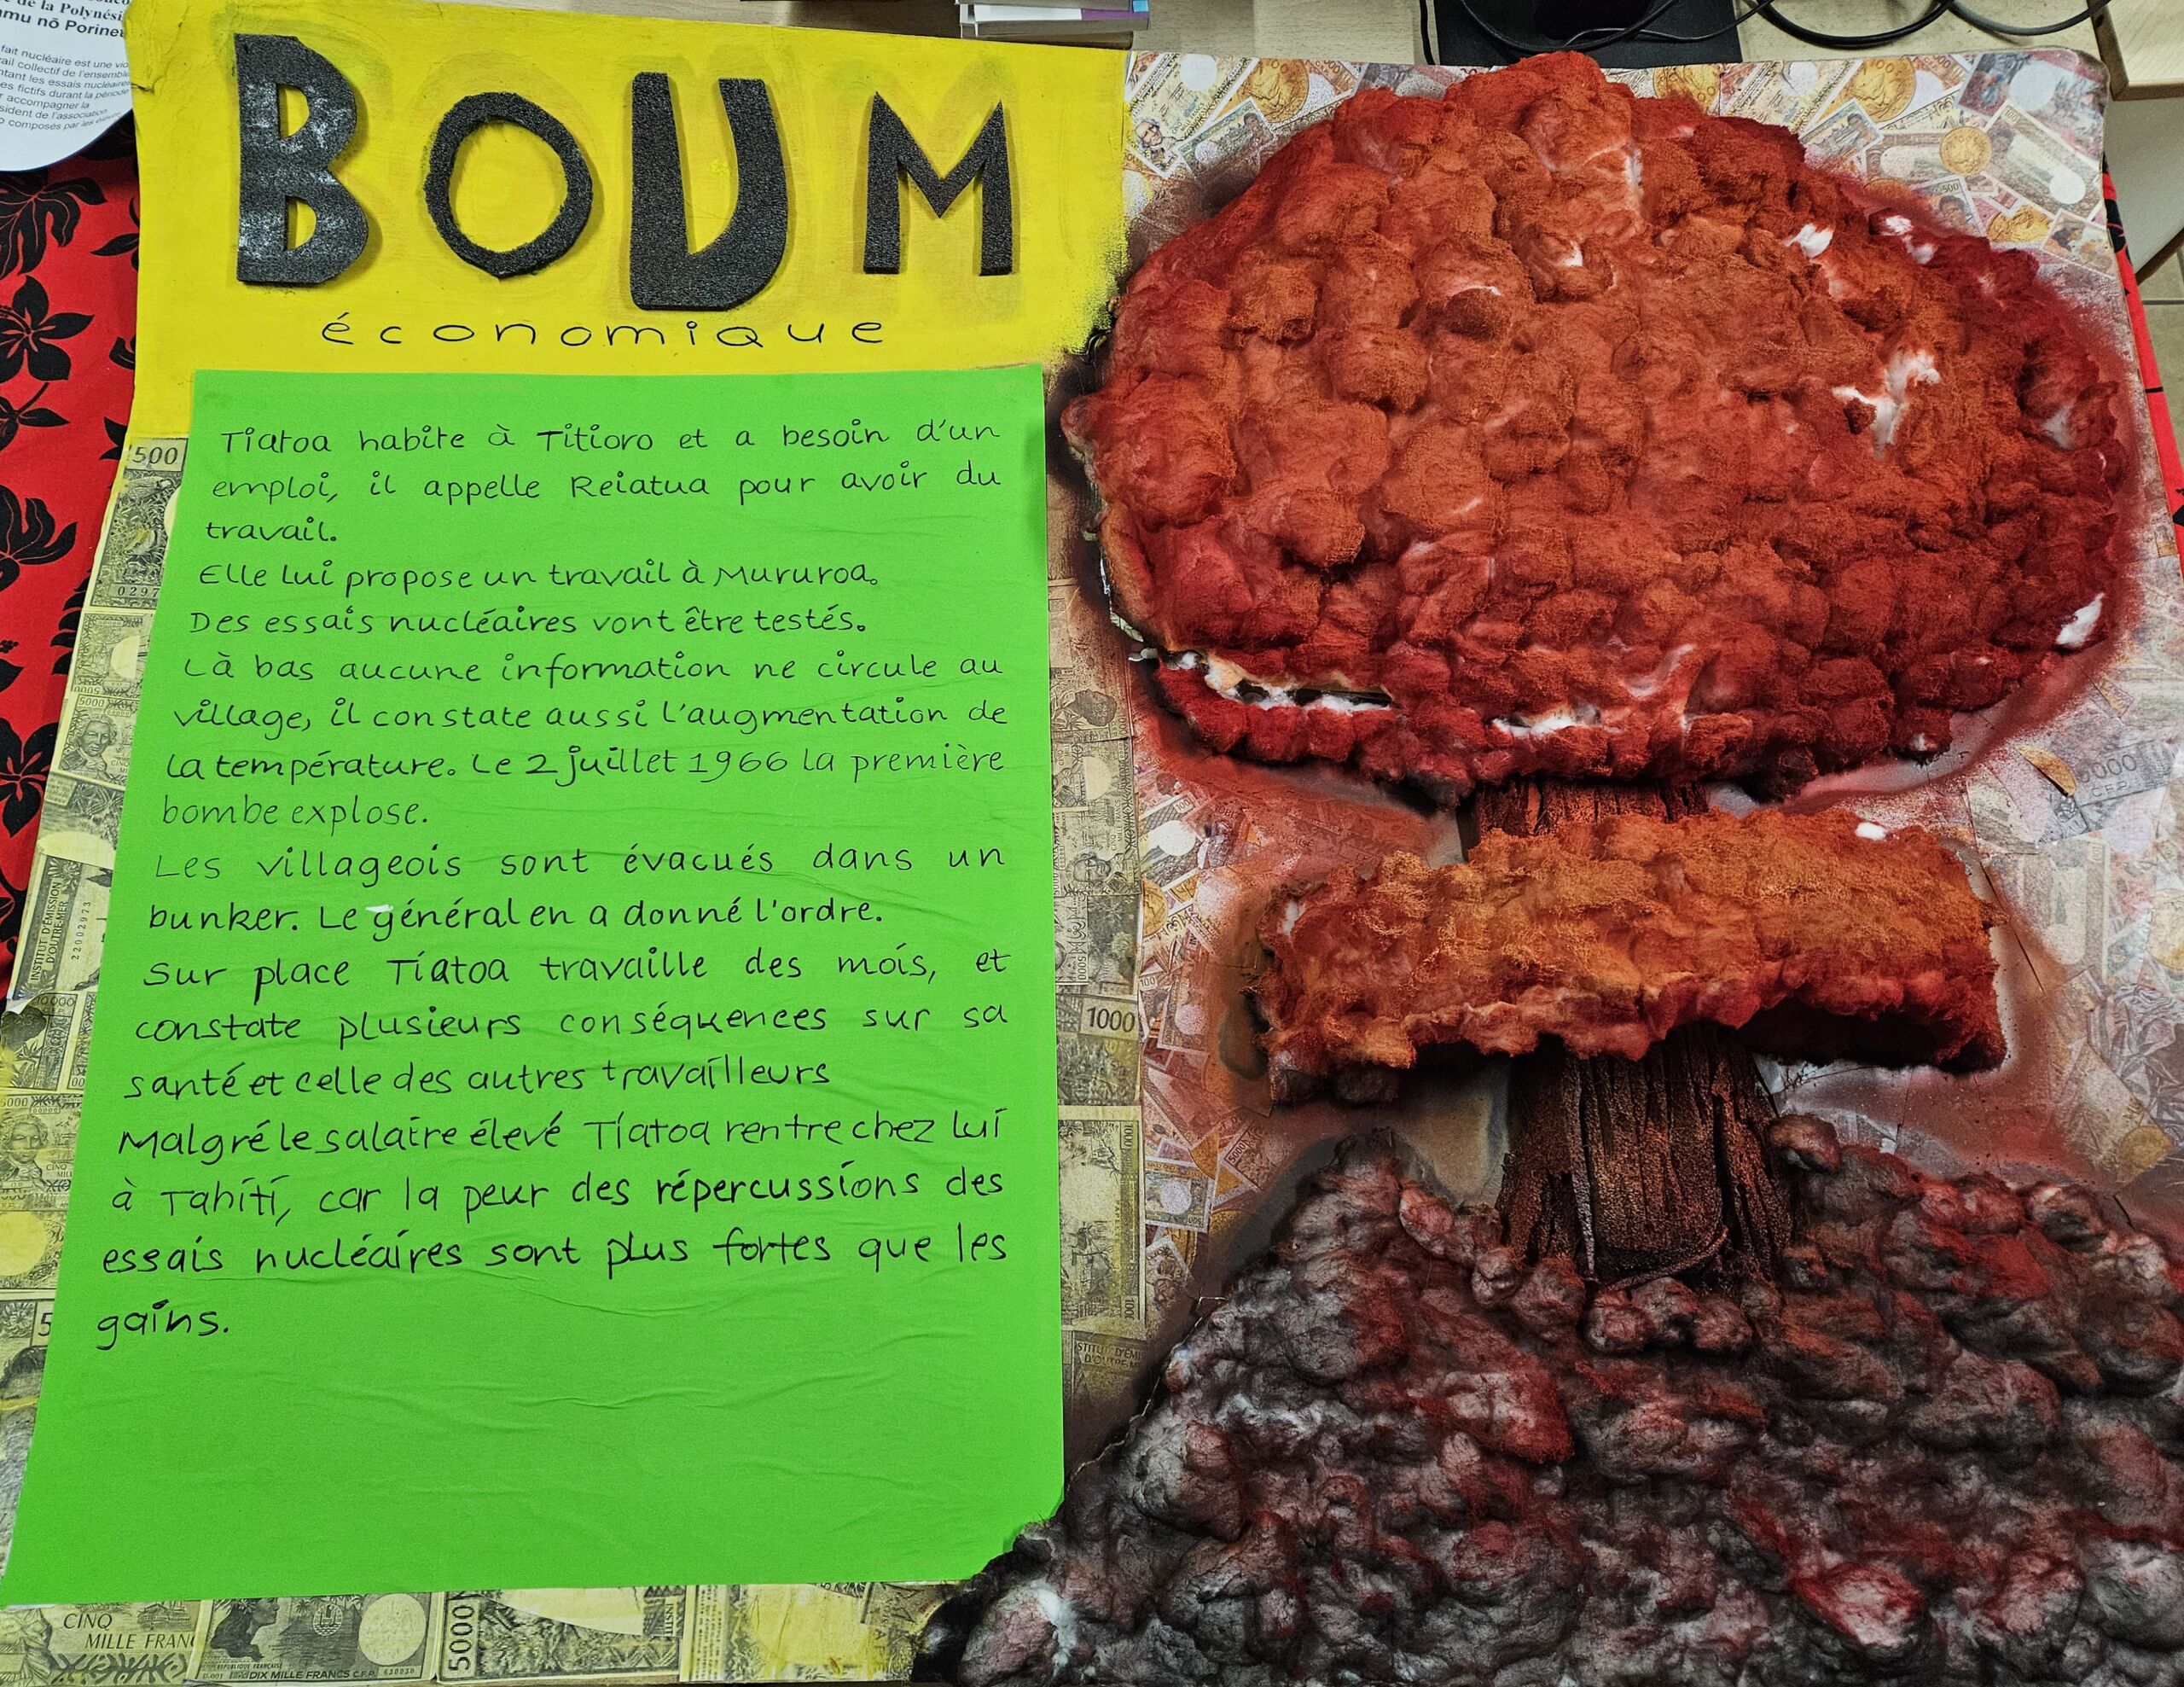 de la Polynési
fait nucléaire est une
collectif de l'ensemble
les essais nucléaires
fictifs durant la période
accompagner la
de l'association
composés par les
BOUM
économique
Tiatoa habite à Titioro et a besoin d'un
emploi, il appelle Reiatua pour avoir du
travail.
Elle lui propose un travail à Mururoa.
Des essais nucléaires vont être testés.
Là bas aucune information ne circule au
village, il constate aussi l'augmentation de
la température. Le 2 juillet 1966 la première
bombe explose.
Les villageois sont évacués dans un
bunker. Le général en a donné l'ordre.
Sur place Tiatoa travaille des mois, et
constate plusieurs conséquences sur sa
santé et celle des autres travailleurs
Malgré le salaire élevé Tiatoa rentre chez lui
à Tahiti, car la peur des répercussions des
essais nucléaires sont plus fortes que les
gains.
500
0297
5000
INSTITUT D'ÉMISSION
D'OUTRE-MER
2200293
10,000
5000
1000
1000
CINQ
MILLE FRANC
RÉPUBLIQUE FRANÇAISE
DIX MILLE FRANCS C.F.P.
5000